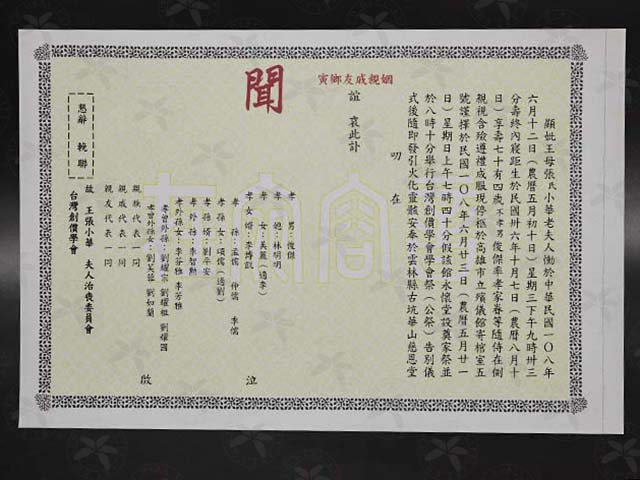 顯妣王母張氏小華老夫人慟於中華民國一〇八年
六月十二日（農曆五月初十日）星期三下午九時卅三
分壽終內寢距生於民國卅六年十月七日（農曆八月十
日）享壽七十有四歲不孝男俊傑率孝家眷等隨侍在側
親視含殮遵禮成服現停柩於高雄市立殯儀館寄棺室五
號謹擇於民國一〇八年六月廿三日（農曆五月廿一
日）星期日上午七時四十分假該館永懷堂設奠家祭並
於八時十分舉行台灣創價學會學會祭（公祭）告別儀
式後隨即發引火化靈骸安奉於雲林縣古坑華山慈恩堂
叨 在
姻親戚友鄉寅
誼 哀此訃
聞
孝 男：俊傑
孝 媳：林明明
孝 女：美麗（適李）
孝女婿：李博凱
孝 孫：孟儒 仲儒 季儒
孝孫女：頌儒（適劉）
孝孫婿：劉平安
孝外孫：李智勲
孝外孫女：李芬雅 李芳雅
孝曾外孫：劉耀宗 劉耀祖 劉耀國
孝曾外孫女：劉芙蓉 劉如蘭
泣 啟
親族代表一同
親戚代表一同
親友代表一同
故 王張小華 夫人治喪委員會
台灣創價學會
懇辭 輓聯